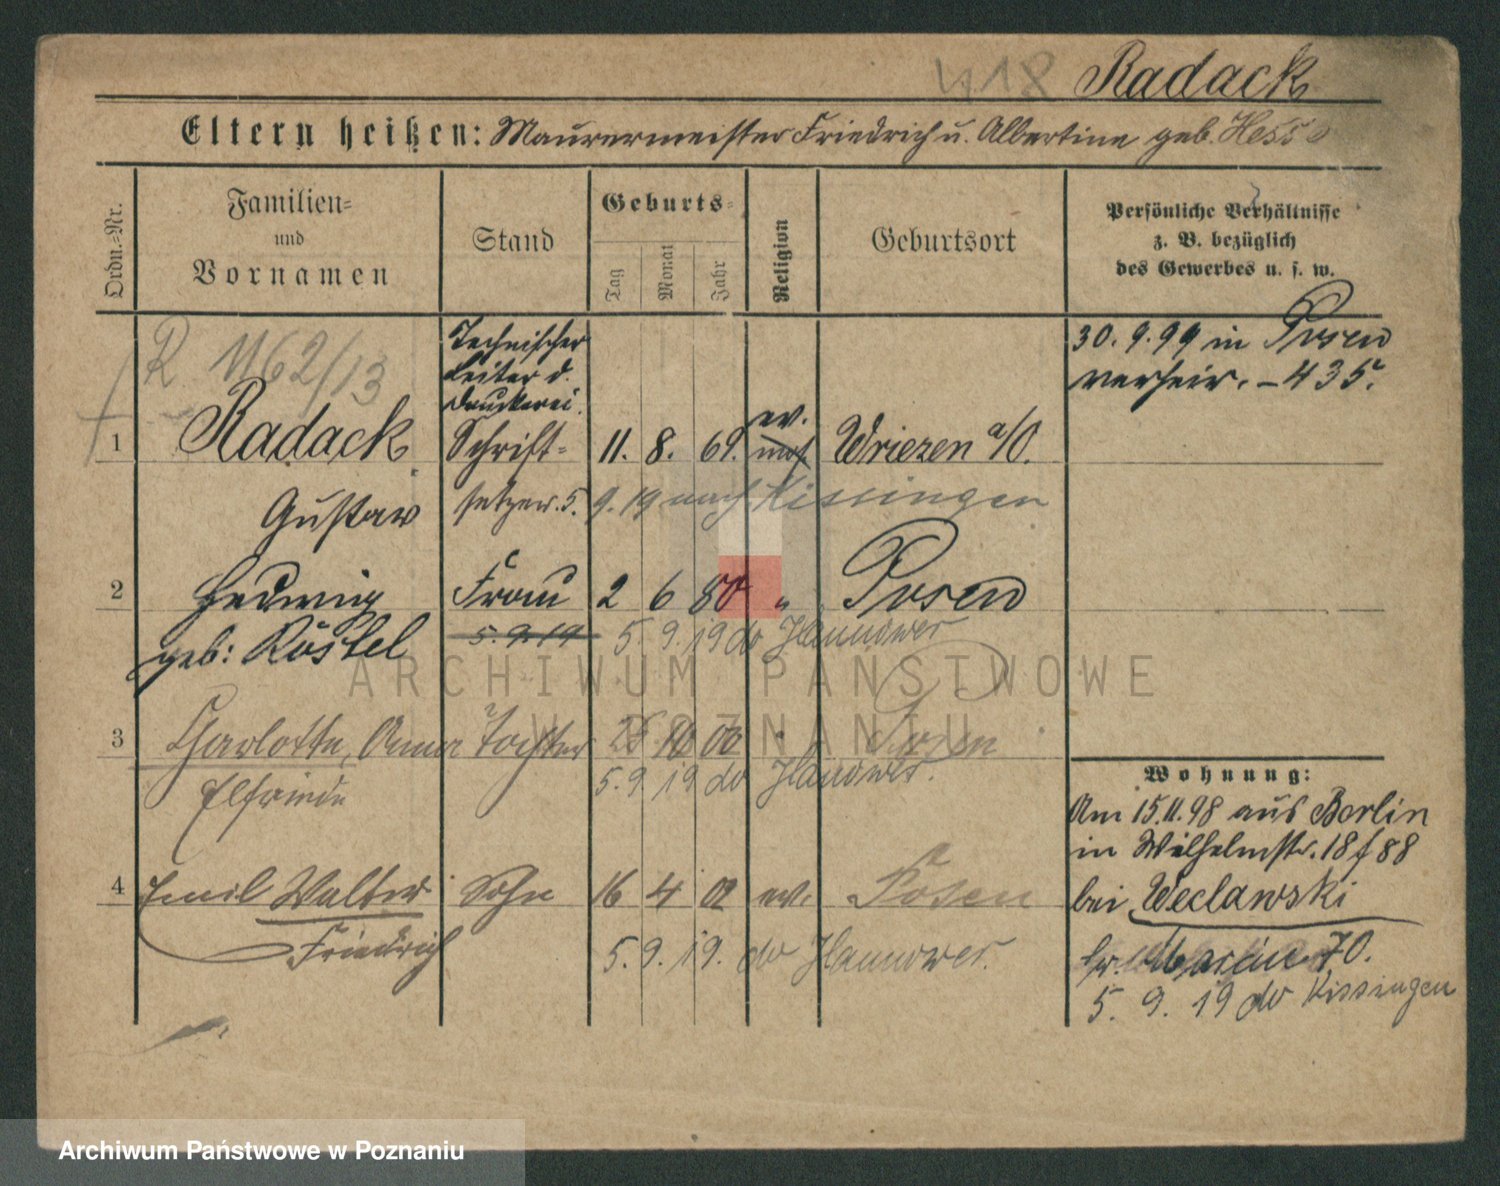 418 Radack
Eltern heißen: Maurermeister Friedrich u. Albertine geb. Hesse
Ordn.-Nr.
Familien-
und
Vornamen
Stand
Geburts-
Tag
Monat
Jahr
Religion
Geburtsort
Persönliche Verhältnisse
z. B. bezüglich
des Gewerbes u. s. w.
R 1162/13
Technischer
Leiter d.
Druckerei.
30. 9. 99 in Posen
verheir. – 435.
1 Radack Schrift- 11. 8. 69. ev. Wriezen a/O.
Gustav setzer. 5. 9. 19 nach Kissingen
2 Hedwig Frau 2 6 80 " Posen
geb: Röstel 5. 9. 19 5. 9. 19 do Hannower
ARCHIWUM PAŃSTWOWE
W POZNANIU
3 Charlotte, Anna Tochter 25 10 00 " Posen
Elfriede 5. 9. 19 do Hanower.
4 Emil Walter Sohn 16 4 02 ev. Posen
Friedrich 5. 9. 19. do Hannower.
Wohnung:
Am 15.11.98 aus Berlin
in Wilhelmstr. 18 f 88
bei Weclawski
70.
5. 9. 19 do Kissingen
Archiwum Państwowe w Poznaniu